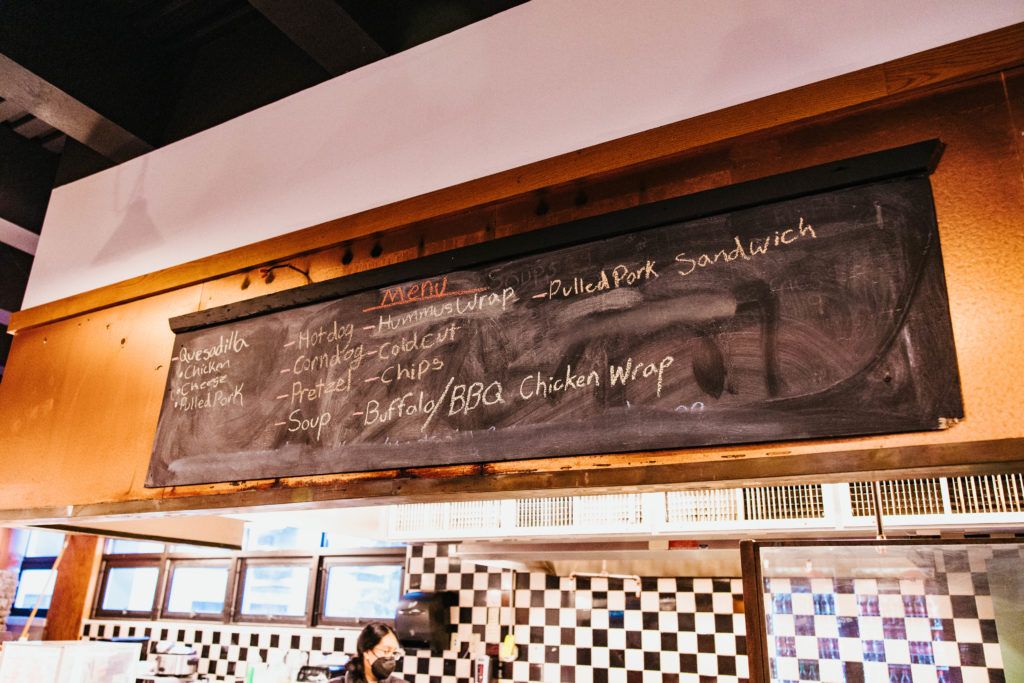 Menu
Soups
-Quesadilla
•Chicken
•Cheese
•Pulled Pork
-Hotdog
-Corndog
-Pretzel
-Soup
-Hummus Wrap
-Cold Cut
-Chips
-Buffalo/BBQ Chicken Wrap
-Pulled Pork Sandwich